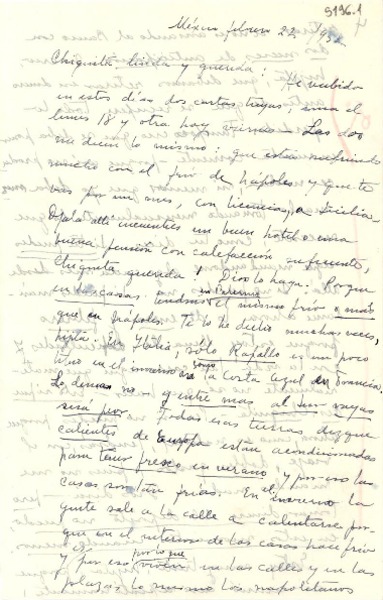 5196.1
México febrero 22 1952
Chiquita linda y querida: He recibido
en estos días dos cartas tuyas, una el
lunes 18 y otra hoy viernes — Las dos
me dicen lo mismo: que estás sufriendo
mucho con el frío de Nápoles y que te
vas por un mes, con licencia, a Sicilia.
Ojalá allí encuentres un buen hotel o una
buena pensión con calefacción suficiente,
Chiquita querida! Dios lo haga. Porque
en las casas tendrás el mismo frío o más
en invierno
que en Nápoles. Te lo he dicho muchas veces,
hijita: En Italia, sólo Rapallo es un poco
tibio en el invierno la Costa Azul de Francia.
Lo demás no — y entre más al sur vayas
será peor. Todas esas tierras dizque
calientes de Europa están acondicionadas
para tener fresco en verano y por eso las
casas son tan frías. En el invierno la
gente sale a la calle a calentarse por-
que en el interior de las casas hace frío
y por eso viven en las calles y en las
por lo que
plazas lo mismo los napolitanos